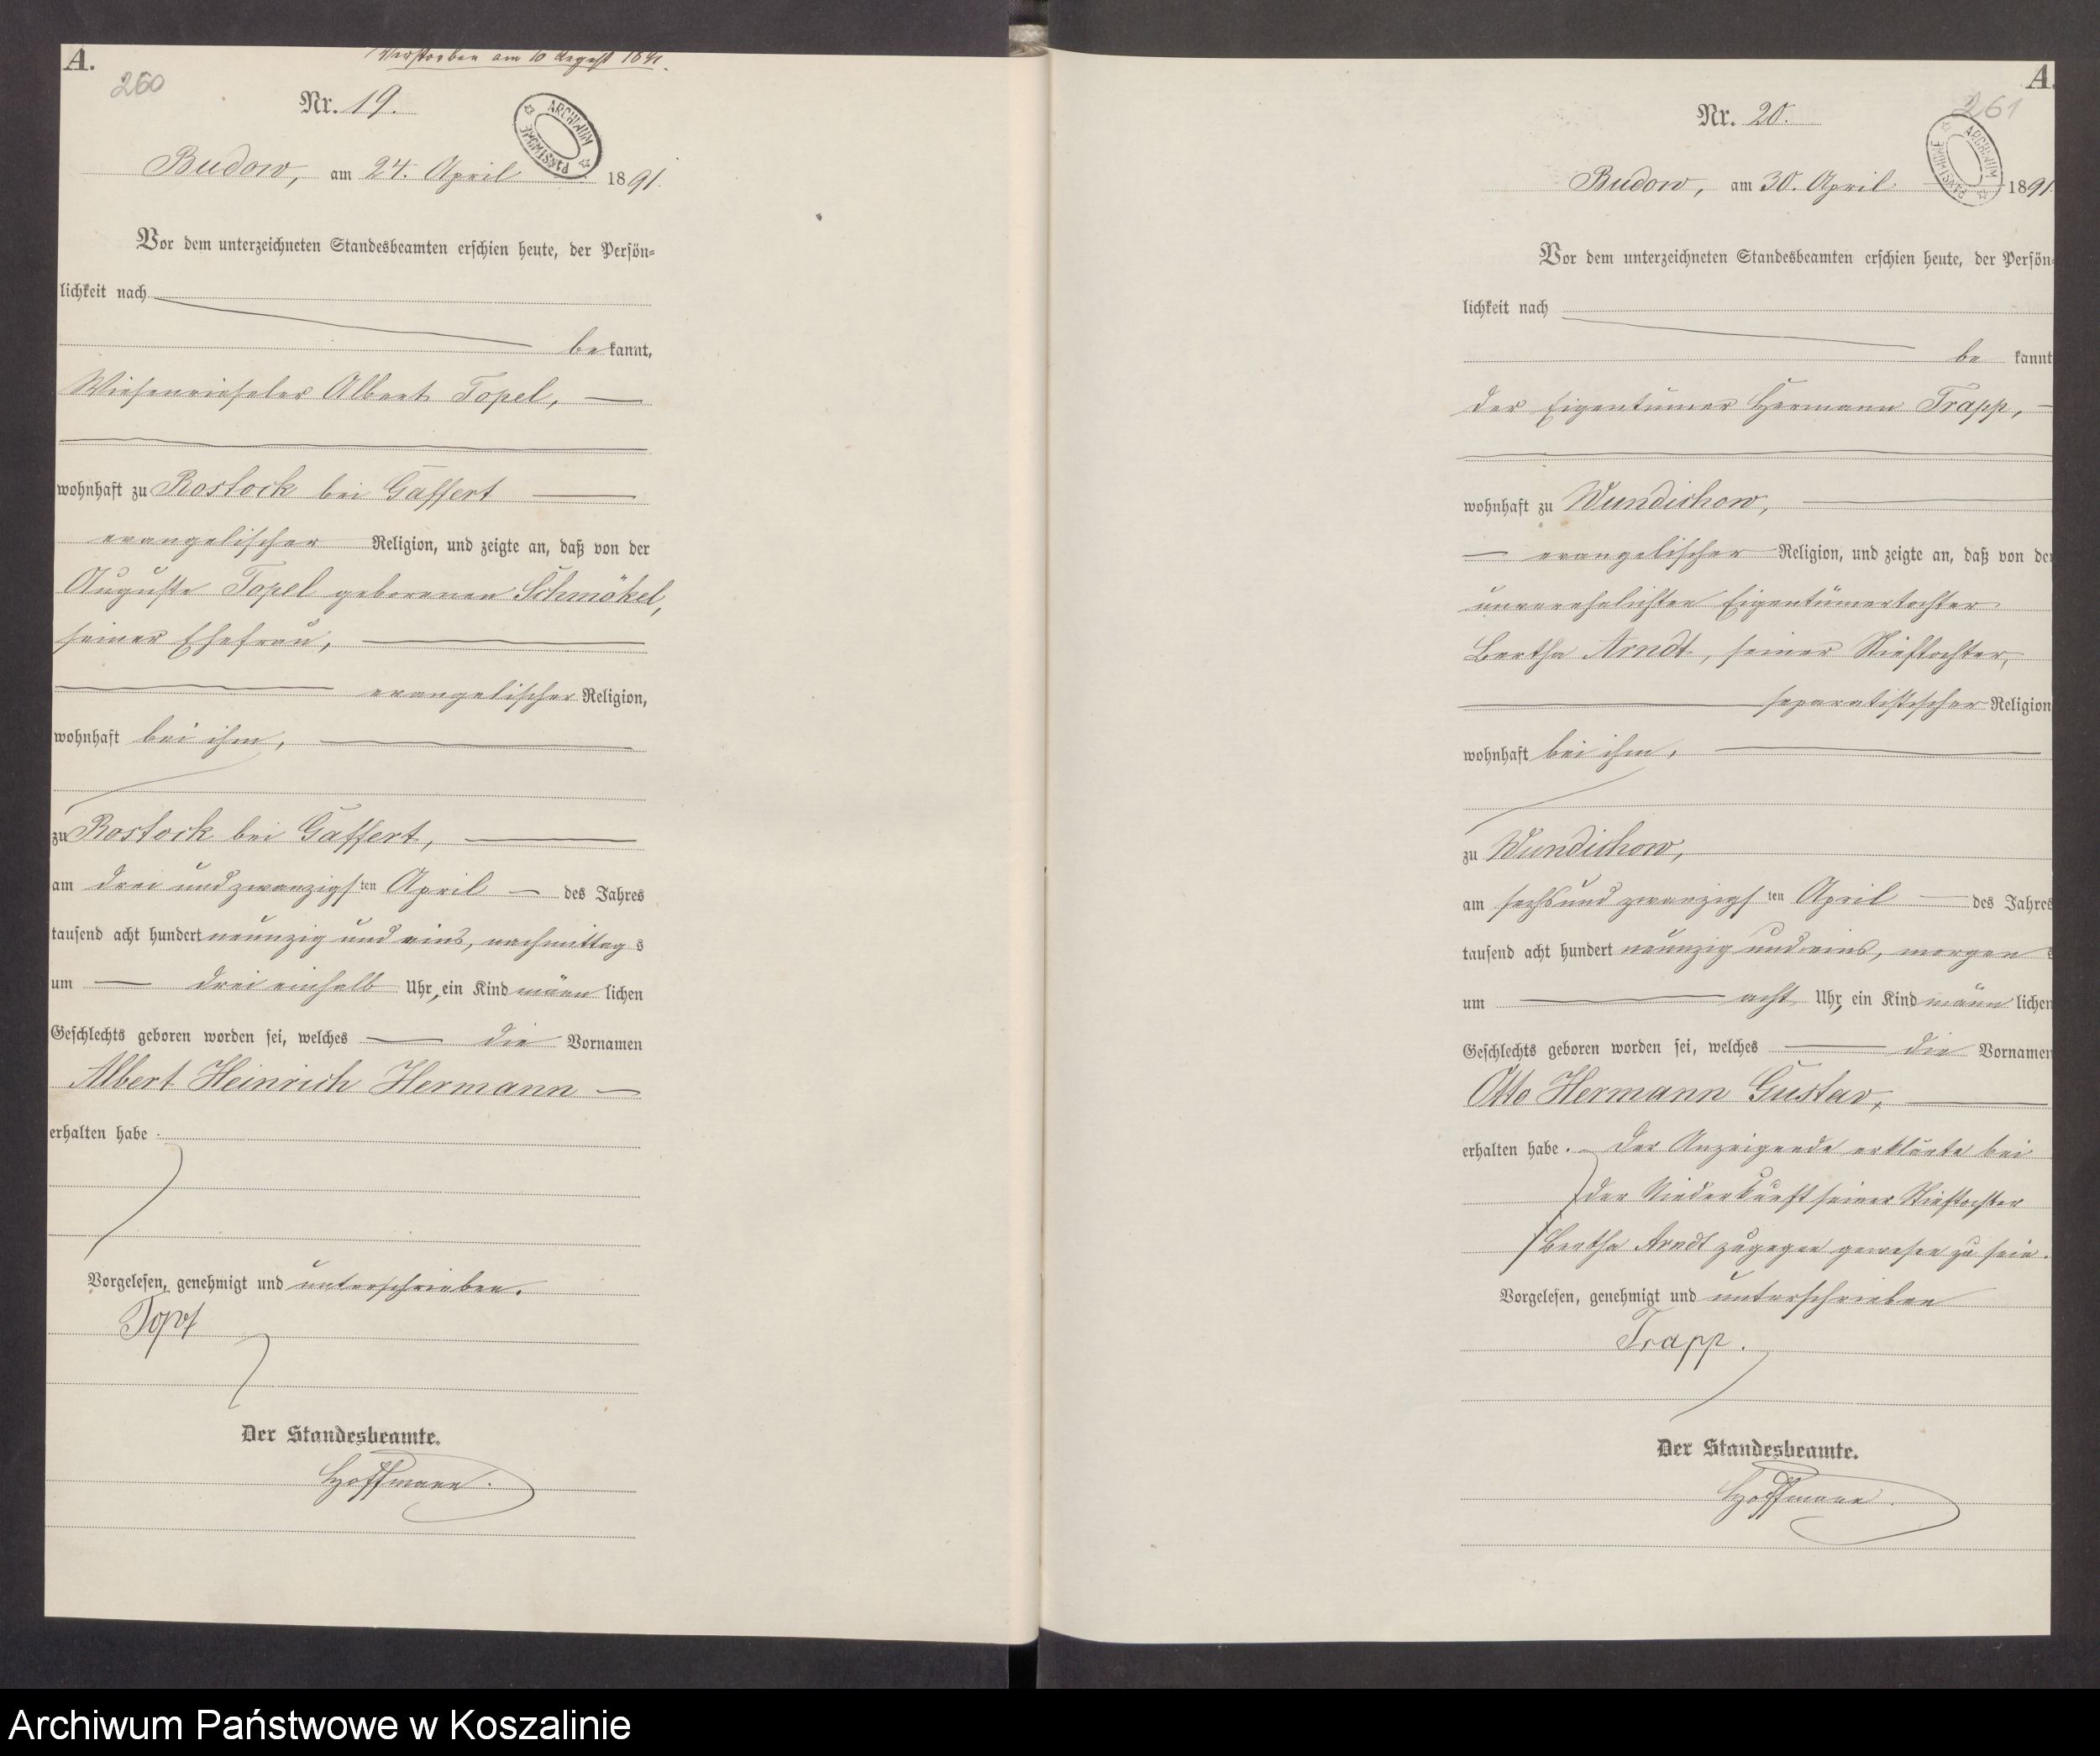 A.
260
Verstorben am 10 August 1891.
Nr. 19.
ARCHIWUM PAŃSTWOWE
Budow, am 24. April 1891.
Vor dem unterzeichneten Standesbeamten erschien heute, der Persön=
lichkeit nach
be kannt,
Wiesenrieseler Albert Topel,
wohnhaft zu Rostock bei Gaffert
evangelischer Religion, und zeigte an, daß von der
Auguste Topel geborenen Schmökel,
seiner Ehefrau,
evangelischer Religion,
wohnhaft bei ihm,
zu Rostock bei Gaffert,
am drei und zwanzigsten April des Jahres
tausend acht hundert neunzig und eins, nachmittag s
um drei einhalb Uhr, ein Kind männ lichen
Geschlechts geboren worden sei, welches die Vornamen
Albert Heinrich Hermann
erhalten habe.
Vorgelesen, genehmigt und unterschrieben.
Der Standesbeamte.
Hoffmann.
A.
261
Nr. 20.
ARCHIWUM PAŃSTWOWE
Budow, am 30. April 1891
Vor dem unterzeichneten Standesbeamten erschien heute, der Persön=
lichkeit nach
be kannt
der Eigentümer Hermann Trapp,
wohnhaft zu Wundichow,
evangelischer Religion, und zeigte an, daß von der
unverehelichten Eigentümertochter
Bertha Arndt, seiner Stieftochter,
separatistischer Religion
wohnhaft bei ihm,
zu Wundichow,
am sechs und zwanzigsten April des Jahres
tausend acht hundert neunzig und eins, morgen s
um acht Uhr, ein Kind männ lichen
Geschlechts geboren worden sei, welches die Vornamen
Otto Hermann Gustav,
erhalten habe. Der Anzeigende erklärte bei
der Niederkunft seiner Stieftochter
Bertha Arndt zugegen gewesen zu sein.
Vorgelesen, genehmigt und unterschrieben
Trapp.
Der Standesbeamte.
Hoffmann.
Archiwum Państwowe w Koszalinie